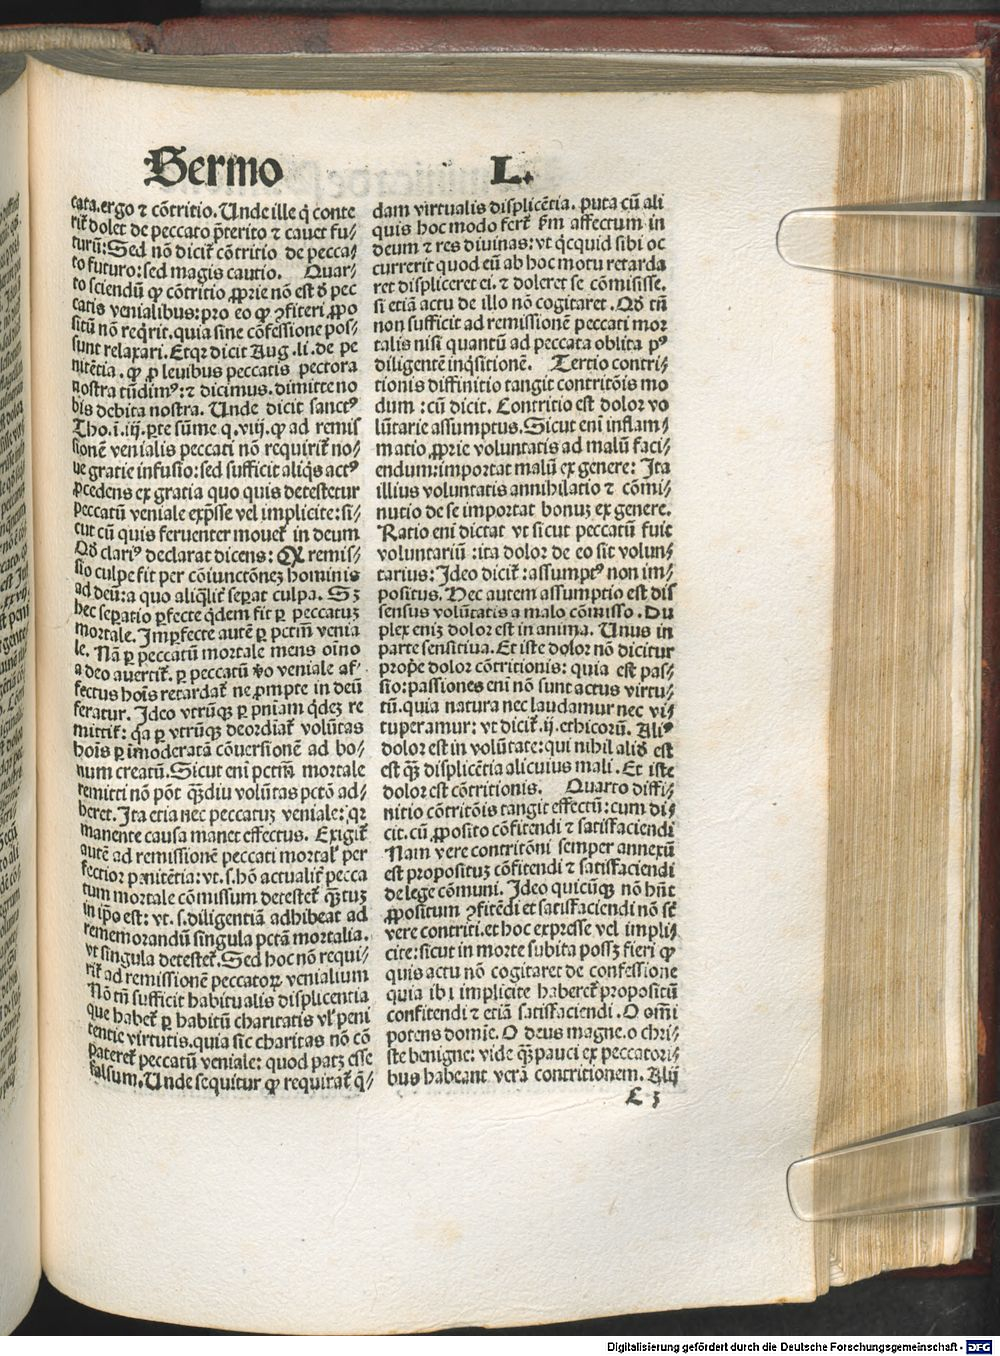 Sermo L.
cata.ergo ⁊ cõtritio. Unde ille q̇ conte
rit̃ dolet de peccato p̃terito ⁊ cauet fu⸗
turũ: Sed nõ dicit̃ cõtritio de pecca⸗
to futuro: sed magis cautio. Quar⸗
to sciendũ ꝙ cõtritio ꝓprie nõ est ð pec
catis venialibus: pro eo ꝙ ꝯfiteri ꝓpo
sitũ nõ req̇rit. quia sine cõfessione pos⸗
sunt relaxari. Etqꝛ dicit Aug. li. de pe
nitẽtia. ꝙ ꝓ leuibus peccatis pectora
nostra tũdimꝰ: ⁊ dicimus. dimitte no
bis debita nostra. Unde dicit sanctꝰ
Tho. i. iij. ꝑte sũme. q. viij. ꝙ ad remis
sionẽ venialis peccati nõ requirit̃ no⸗
ue gratie infusio: sed sufficit aliq̇s actꝰ
ꝓcedens ex gratia quo quis detestetur
peccatũ veniale exp̃sse vel implicite: si⸗
cut cũ quis feruenter mouet̃ in deum
Qð clariꝰ declarat dicens: Ꝙ remis⸗
sio culpe fit per cõiunctõneꝫ hominis
ad deũ: a quo aliq̃lit̃ seꝑat culpa. Sꝫ
hec seꝑatio ꝑfecte q̇dem fit ꝑ peccatuꝫ
mortale. Imꝑfecte autẽ ꝑ pctm̃ venia
le. Nã ꝑ peccatũ mortale mens oĩno
a deo auertit̃. ꝑ peccatũ ṽo veniale af⸗
fectus hoĩs retardat̃ ne ꝓmpte in deũ
feratur. Ideo vtrũqꝫ ꝑ pniam q̇deꝫ re
mittit̃: q̃a ꝑ vtrũqꝫ deordiat̃ volũtas
hoĩs ꝑ ĩmoderatã cõuersionẽ ad bo⸗
num creatũ. Sicut eni pctm̃ mortale
remitti nõ põt q̃ꝫdiu volũtas pctõ ad⸗
heret. Ita etia nec peccatuꝫ veniale: qꝛ
manente causa manet effectus. Exigit̃
autẽ ad remissionẽ peccati mortal̃ per
fectior penitẽtia: vt. s. hõ actualit̃ pecca
tum mortale cõmissum detestet̃ q̃ꝫtuꝫ
in ip̃o est: vt. s. diligentiã adhibeat ad
rememorandũ singula pctã mortalia.
vt singula detestet̃. Sed hoc nõ requi⸗
rit̃ ad remissionẽ peccatoꝝ venialium
Nõ tñ sufficit habitualis displicentia
que habet̃ ꝑ habitũ charitatis vl̃ peni
tentie virtutis. quia sic charitas nõ cõ
pateret̃ peccatũ veniale: quod patꝫ esse
falsum. Unde sequitur ꝙ requirat̃ q̃⸗
dam virtualis displicẽtia. puta cũ ali
quis hoc modo fert̃ ẜm affectum in
deum ⁊ res diuinas: vt q̇cquid sibi oc
currerit quod eũ ab hoc motu retarda
ret displiceret ei. ⁊ doleret se cõmisisse.
si etiã actu de illo nõ cogitaret. Qð tñ
non sufficit ad remissionẽ peccati mor
talis nisi quantũ ad peccata oblita pꝰ
diligentẽ inq̇sitionẽ. Tertio contri⸗
tionis diffinitio tangit contritõis mo
dum: cũ dicit. Contritio est dolor vo
lũtarie assumptus. Sicut eni inflam⸗
matio ꝓprie voluntatis ad malũ faci⸗
endum: importat malũ ex genere: Ita
illius voluntatis annihilatio ⁊ cõmi⸗
nutio de se importat bonuꝫ ex genere.
Ratio eni dictat vt sicut peccatũ fuit
voluntariũ: ita dolor de eo sit volun⸗
tarius: Ideo dicit̃: assumptꝰ non im⸗
positus. Hec autem assumptio est dis
sensus volũtatis a malo cõmisso. Du
plex eniꝫ dolor est in anima. Unus in
parte sensitiua. Et iste dolor nõ dicitur
prope dolor cõtritionis: quia est pas⸗
sio: passiones eni nõ sunt actus virtu⸗
tũ. quia natura nec laudamur nec vi⸗
tuperamur: vt dicit̃. ij. ethicorũ. Aliꝰ
dolor est in volũtate: qui nihil alið est
est q̃ꝫ displicẽtia alicuius mali. Et iste
dolor est cõtritionis. Quarto diffi⸗
nitio cõtritõis tangit effectũ: cum di⸗
cit. cũ ꝓposito cõfitendi ⁊ satisfaciendi
Nam vere contritõni semper annexũ
est proposituꝫ cõfitendi ⁊ satisfaciendi
de lege cõmuni. Ideo quicũqꝫ nõ hñt
ꝓpositum ꝯfitẽdi et satisfaciendi nõ st̃
vere contriti. et hoc expresse vel impli⸗
cite: sicut in morte subita possꝫ fieri ꝙ
quis actu nõ cogitaret de confessione
quia ibi implicite haberet̃ propositũ
confitendi ⁊ etiã satisfaciendi. O om̃i
potens domĩe. O deus magne. o chri⸗
ste benigne: vide q̃ꝫ pauci ex peccatori⸗
bus habeant verã contritionem. Alij
L 3
Digitalisierung gefördert durch die Deutsche Forschungsgemeinschaft - DFG